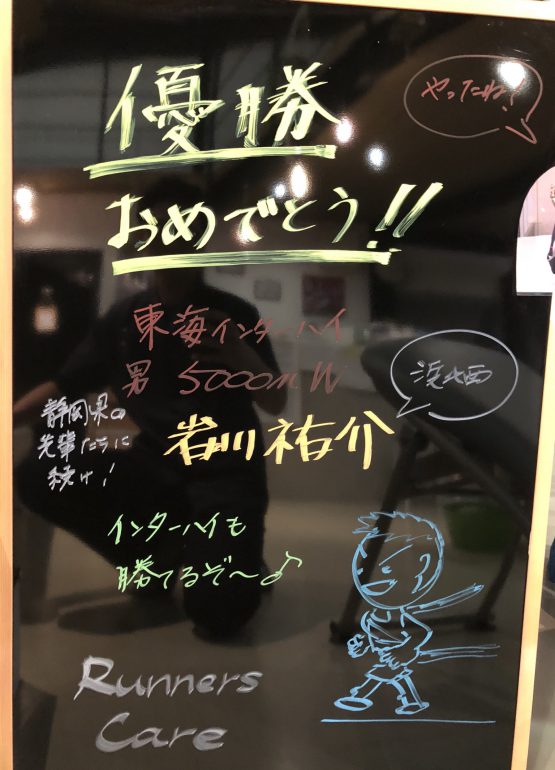 優勝
やったね!
おめでとう!!
東海インターハイ
男 5000m W
浜松西
岩川祐介
静岡県の
先輩たちに
続け!
インターハイも
勝てるぞ〜♪
Runners
Care